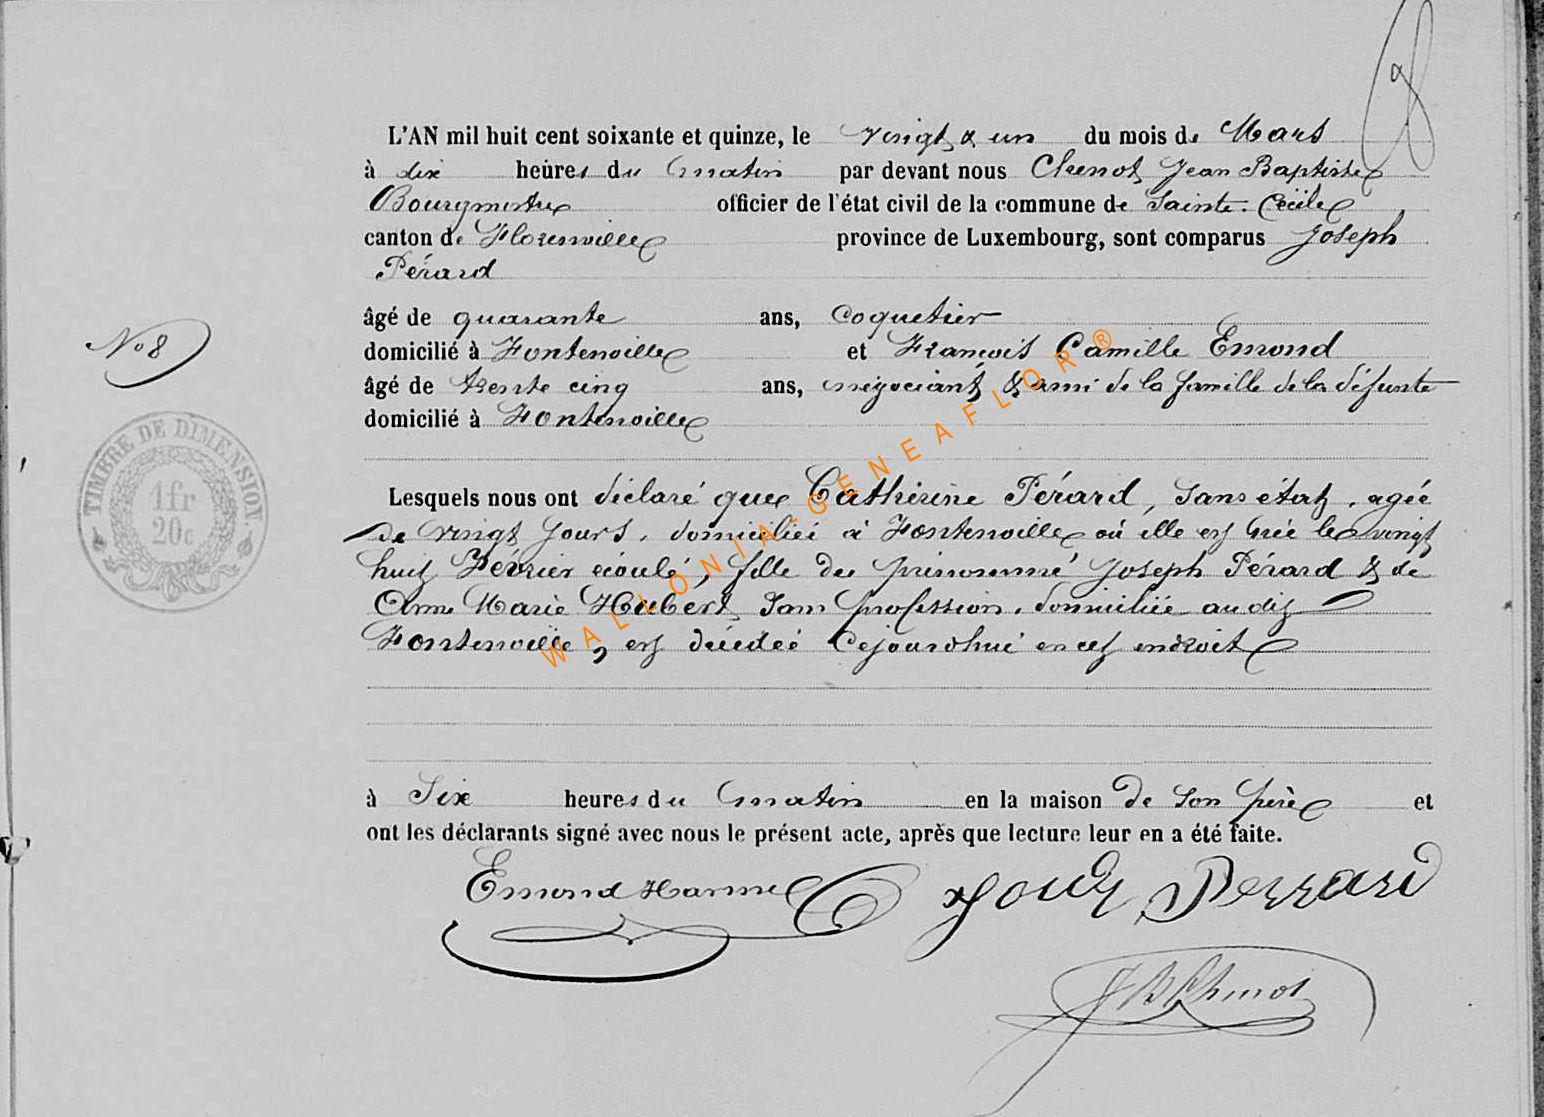 8
L'AN mil huit cent soixante et quinze, le vingt & un du mois de Mars
à dix heures du matin par devant nous Chenot Jean Baptiste
Bourgmestre officier de l'état civil de la commune de Sainte-Cécile
canton de Florenville province de Luxembourg, sont comparus Joseph
Pérard
âgé de quarante ans, coquetier
N° 8
domicilié à Fontenoille et François Camille Emond
âgé de trente cinq ans, négociant & ami de la famille de la défunte
domicilié à Fontenoille
TIMBRE DE DIMENSION.
1fr
20c
Lesquels nous ont déclaré que Catherine Pérard, sans état, agée
de vingt jours, domiciliée à Fontenoille où elle est née le vingt
huit Février écoulé, fille du prénommé Joseph Pérard & de
Anne Marie Hubert sans profession, domiciliée audit
Fontenoille, est décédée cejourdhui en cet endroit
à Six heures du matin en la maison de son père et
ont les déclarants signé avec nous le présent acte, après que lecture leur en a été faite.
Emond Perrard
JB Chenot
WALLONIA-GENEAFLOR®